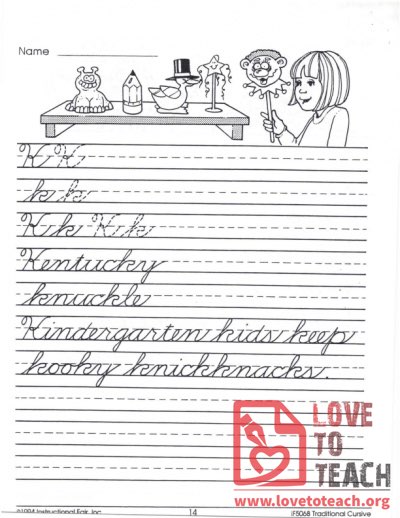 Name
K K
k k
Kk Kk
Kentucky
knuckle
Kindergarten kids keep
kooky knickknacks.
LOVE
TO
TEACH
www.lovetoteach.org
©1994 Instructional Fair, Inc.
14
IF5068 Traditional Cursive